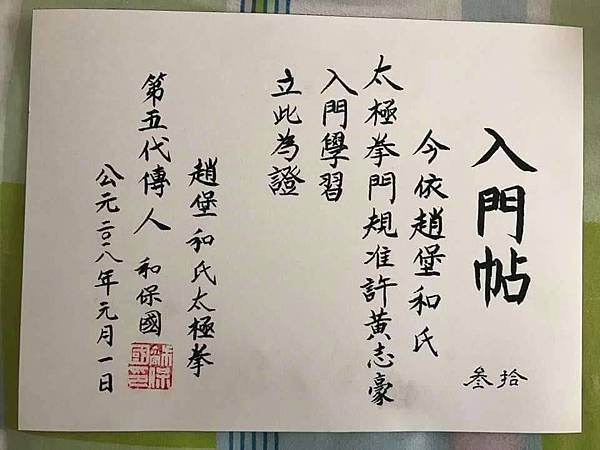 入門帖
叁拾
今依趙堡和氏
太極拳門規准許黃志豪
入門學習
立此為證
趙堡和氏太極拳
第五代傳人 和保國
公元二〇一八年元月一日